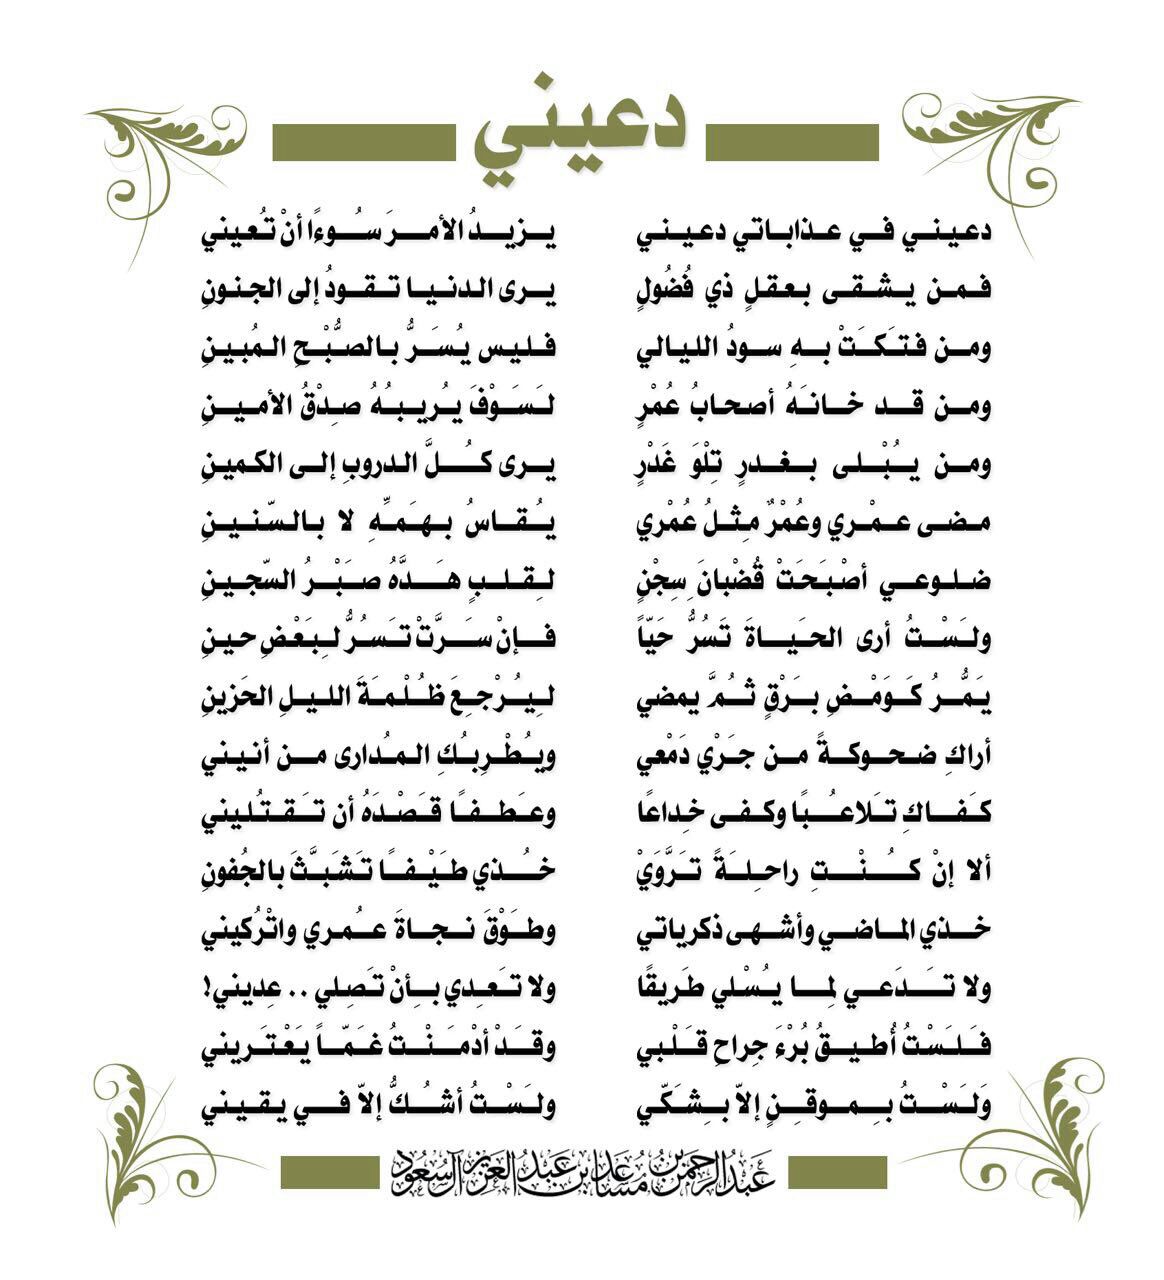 دعيني
دعيني في عذاباتي دعيني يزيدُ الأمرَ سُوءًا أنْ تُعيني
فمن يشقى بعقلٍ ذي فُضُولٍ يرى الدنيا تقودُ إلى الجنونِ
ومن فتَكَتْ بهِ سودُ الليالي فليس يُسَرُّ بالصُّبْحِ المُبينِ
ومن قد خانَهُ أصحابُ عُمْرٍ لَسَوْفَ يُريبُهُ صِدْقُ الأمينِ
ومن يُبْلى بغدرٍ تِلْوَ غَدْرٍ يرى كُلَّ الدروبِ إلى الكمينِ
مضى عمْري وعُمْرٌ مِثلُ عُمْري يُقاسُ بهَمِّهِ لا بالسّنينِ
ضلوعي أصْبَحَتْ قُضْبانَ سِجْنٍ لِقلبٍ هَدَّهُ صبَرْ السّجينِ
ولَسْتُ أرى الحَياةَ تَسُرُّ حَيّاً فإنْ سَرَّتْ تَسُرُّ لِبَعْضِ حينِ
يَمُّرُ كَوَمْضِ بَرْقٍ ثُمَّ يمضي لِيُرْجِعَ ظُلْمَةَ الليلِ الحَزينِ
أراكِ ضحوكةً من جَرْي دَمْعي ويُطْرِبُكِ المُدارى من أنيني
كَفاكِ تَلاعُبًا وكفى خِداعًا وعَطفًا قَصْدَهُ أن تَقتُليني
ألا إنْ كُنْتِ راحِلَةً تَرَّوَيْ خُذي طَيْفًا تَشَبَّثَ بالجُفونِ
خذي الماضي وأشهى ذكرياتي وطَوْقَ نجاةَ عُمري واتْرُكيني
ولا تَدَعي لِما يُسْلي طَريقًا ولا تَعِدي بأنْ تَصِلي .. عِديني!
فَلَسْتُ أُطيقُ بُرْءَ جِراحِ قَلْبي وقَدْ أدْمَنْتُ غَمّاً يَعْتَريني
وَلَسْتُ بموقنٍ إلاّ بِشَكّي ولَسْتُ أشُكُّ إلاّ في يقيني
عَبْدُ الرحمن بن مُسَاعد ابن عَبْدُ العَزيز آل سُعُود